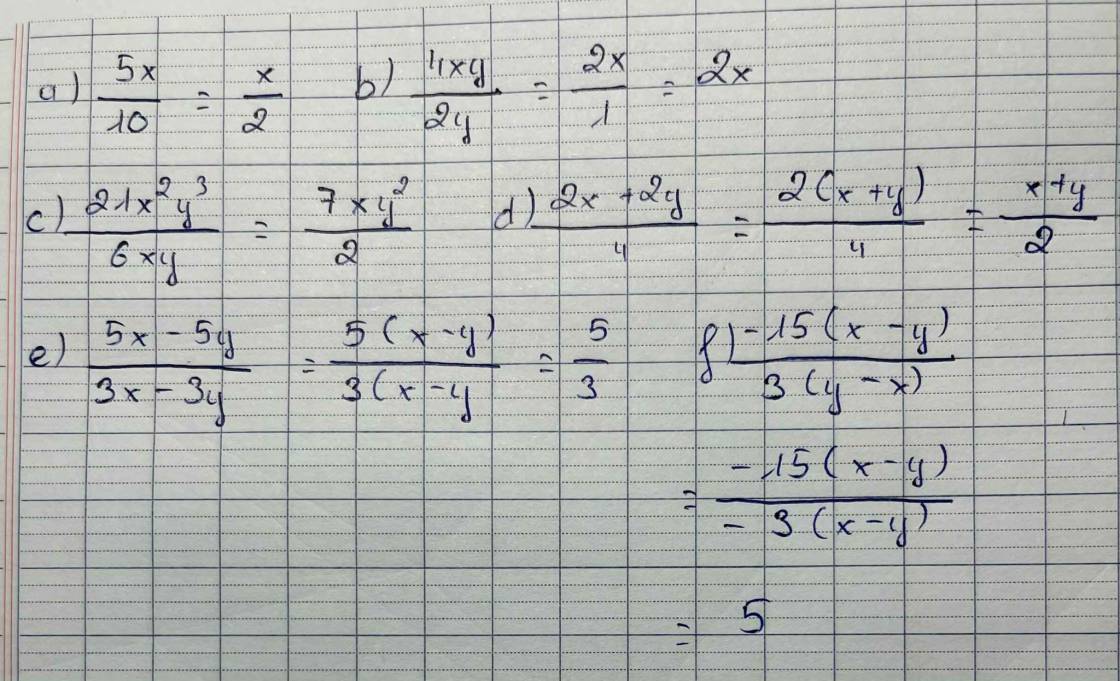 a) 5x/10 = x/2 b) 4xy/2y = 2x/1 = 2x
c) 21x²y³/6xy = 7xy²/2 d) 2x+2y/4 = 2(x+y)/4 = x+y/2
e) 5x-5y/3x-3y = 5(x-y)/3(x-y = 5/3 f) -15(x-y)/3(y-x)
= -15(x-y)/-3(x-y)
= 5